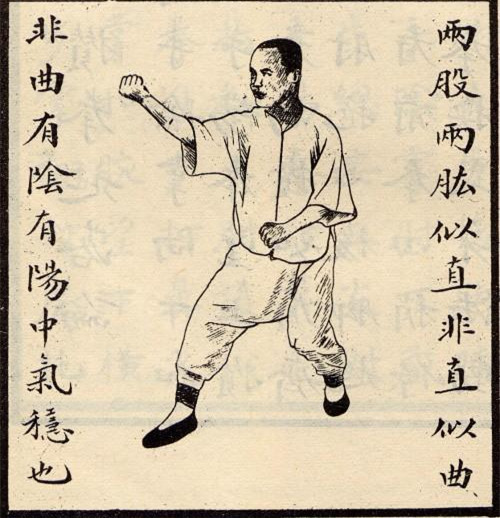 兩股兩肱似直非直似曲
非曲有陰有陽中氣穩也